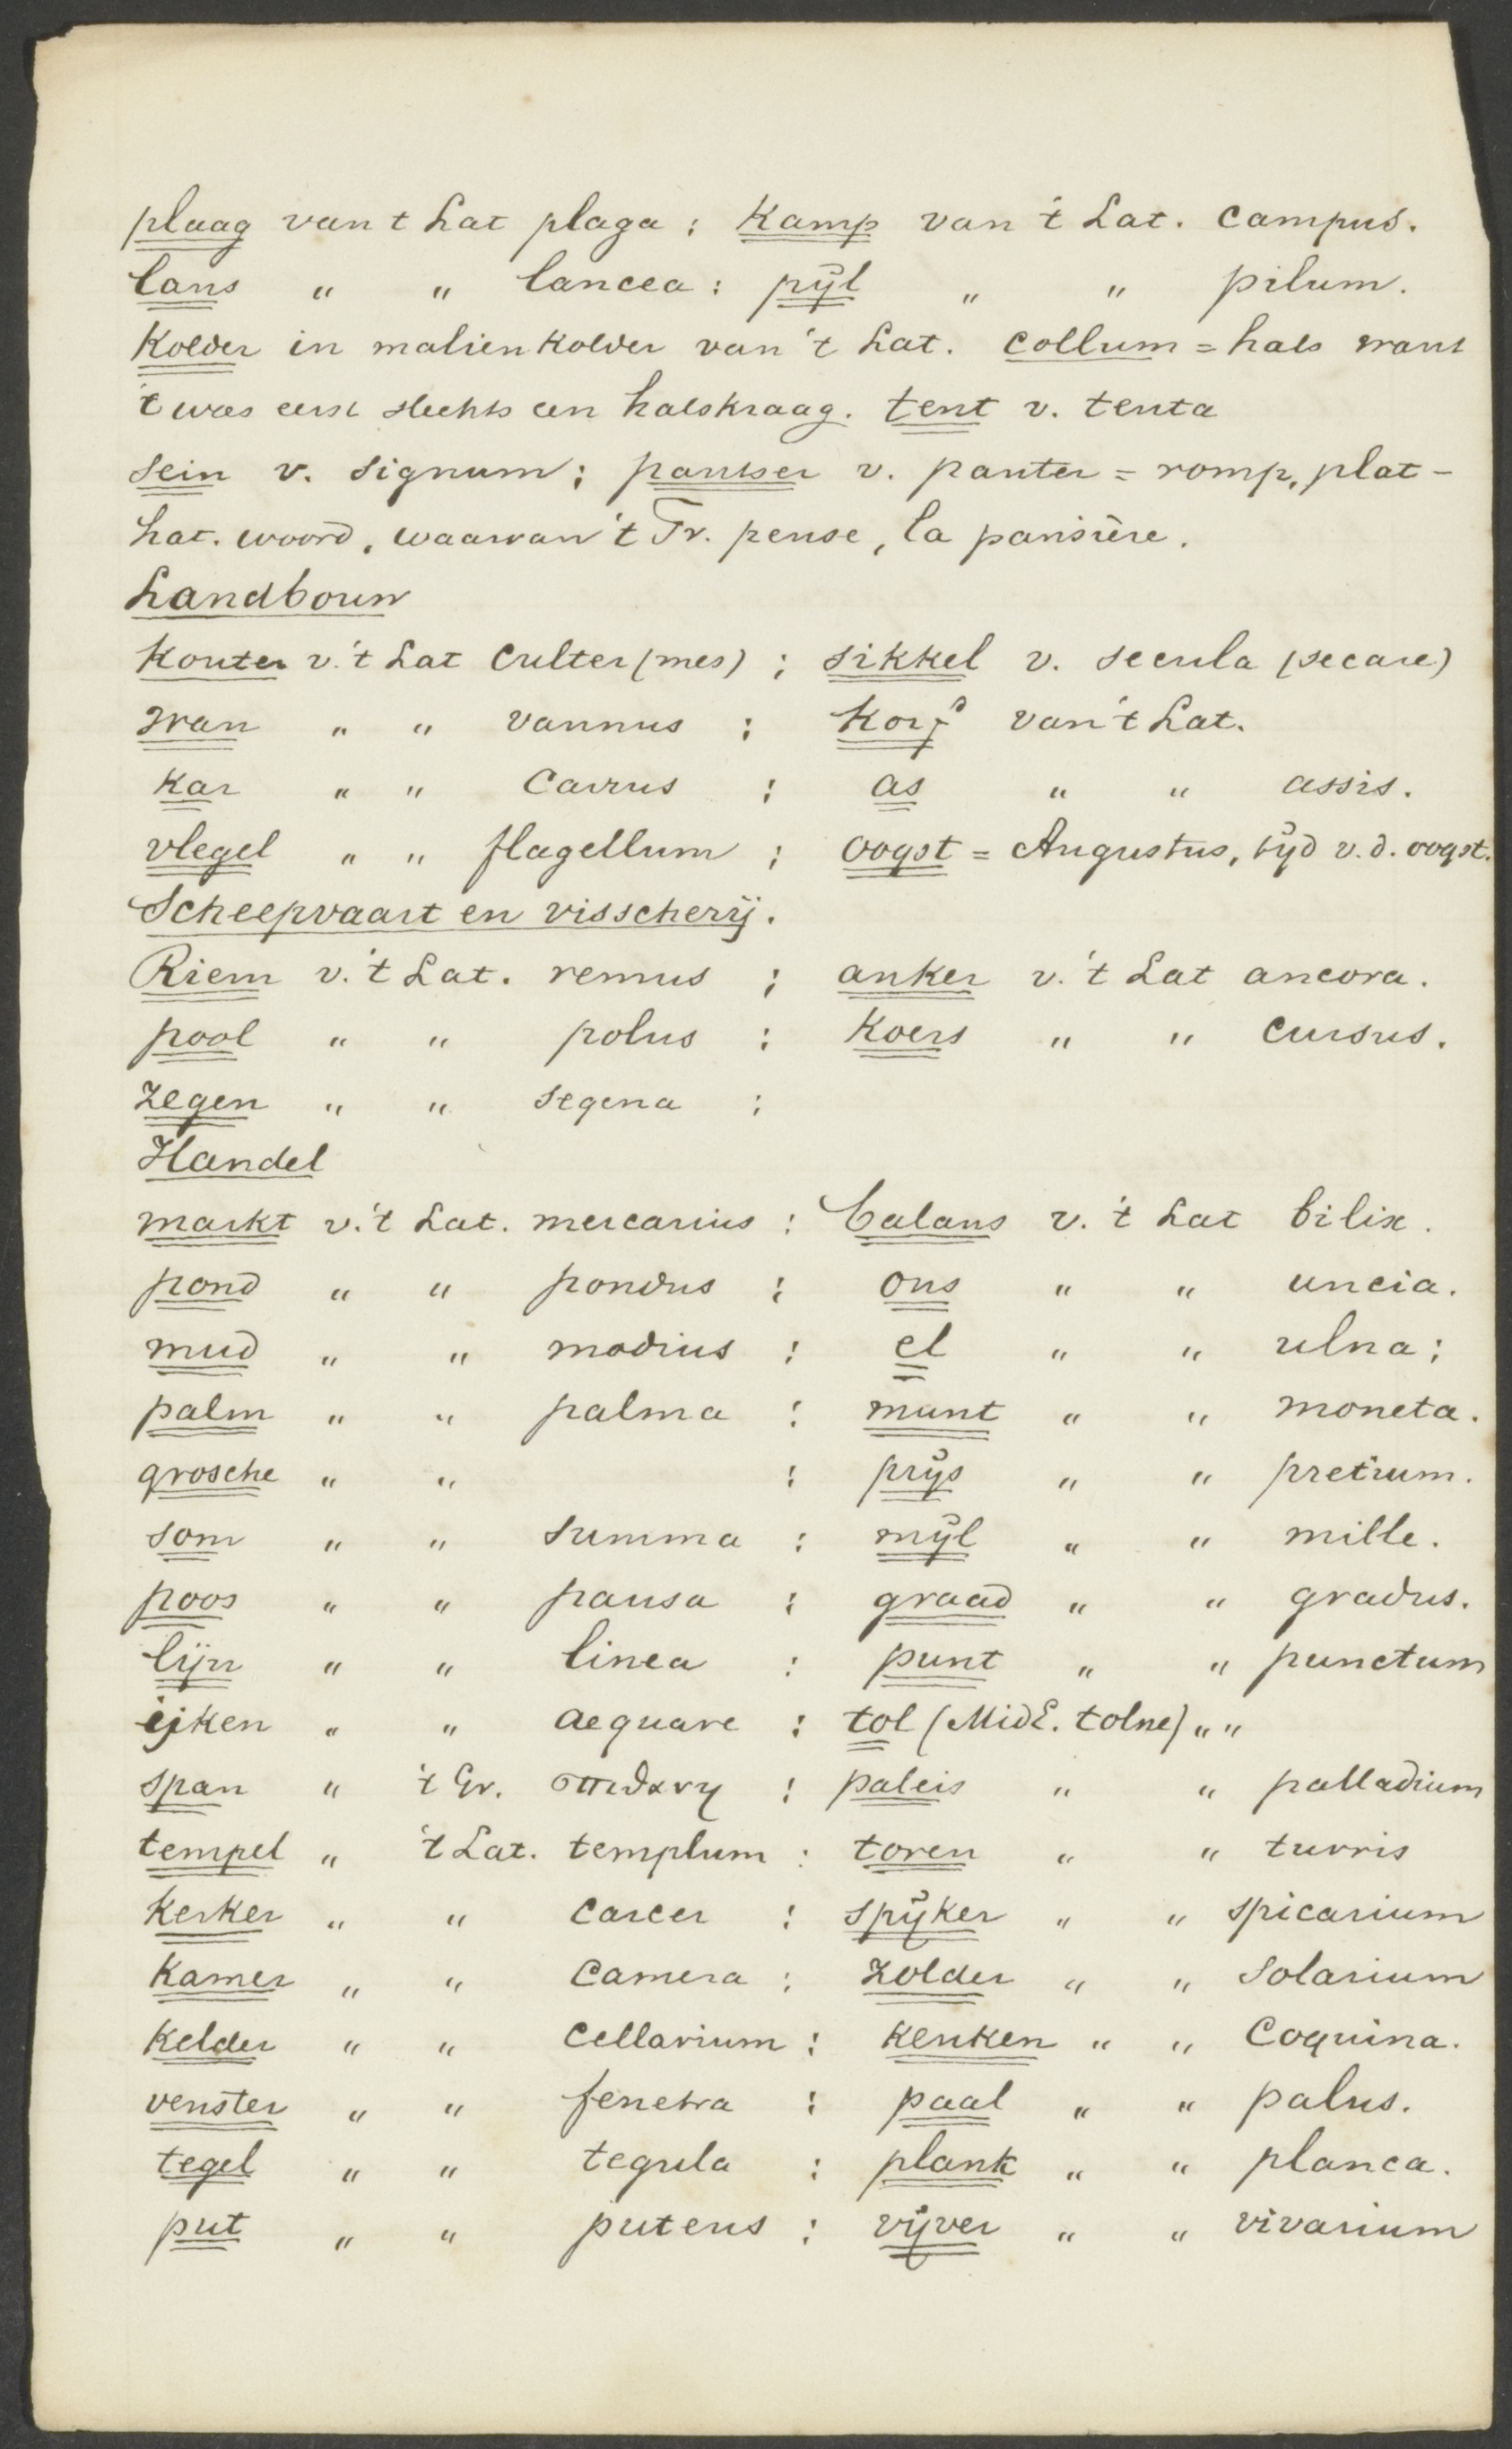 plaag van t Lat plaga ; Kamp van 't Lat. campus.
lans " " lancea : pijl " " pilum.
Kolder in malienkolder van 't Lat. collum = hals want
't was eerst slechts een halskraag. tent v. tenta
sein v. signum ; pantser v. panter = romp, plat-
Lat. woord, waarvan 't Fr. pense, la pansière.
Landbouw
Kouter v. 't Lat culter (mes) ; sikkel v. secula (secare)
wan " " vannus ; Korf van 't Lat.
kar " " Carrus ; as " " assis.
vlegel " " flagellum ; oogst = Augustus, tijd v. d. oogst.
Scheepvaart en visscherij.
Riem v. 't Lat. remus ; anker v. 't Lat ancora.
pool " " polus : Koers " " cursus.
zegen " " segena ;
Handel
markt v. 't Lat. mercarius : balans v. 't Lat bilix.
pond " " pondus : ons " " uncia.
mud " " modius : el " " ulna ;
palm " " palma : munt " " moneta.
grosche " " : prijs " " pretium.
som " " summa : mijl " " mille.
poos " " pausa : graad " " gradus.
lijn " " linea : punt " " punctum
ijken " " aequare : tol (Midl. tolne) " "
span " 't Gr. : paleis " " palladium
tempel " 't Lat. templum : toren " " turris
kerker " " carcer : spijker " " spicarium
Kamer " " camera : zolder " " solarium
kelder " " cellarium : keuken " " Coquina.
venster " " fenetra : paal " " palus.
tegel " " tegula : plank " " planca.
put " " puteus : vijver " " vivarium